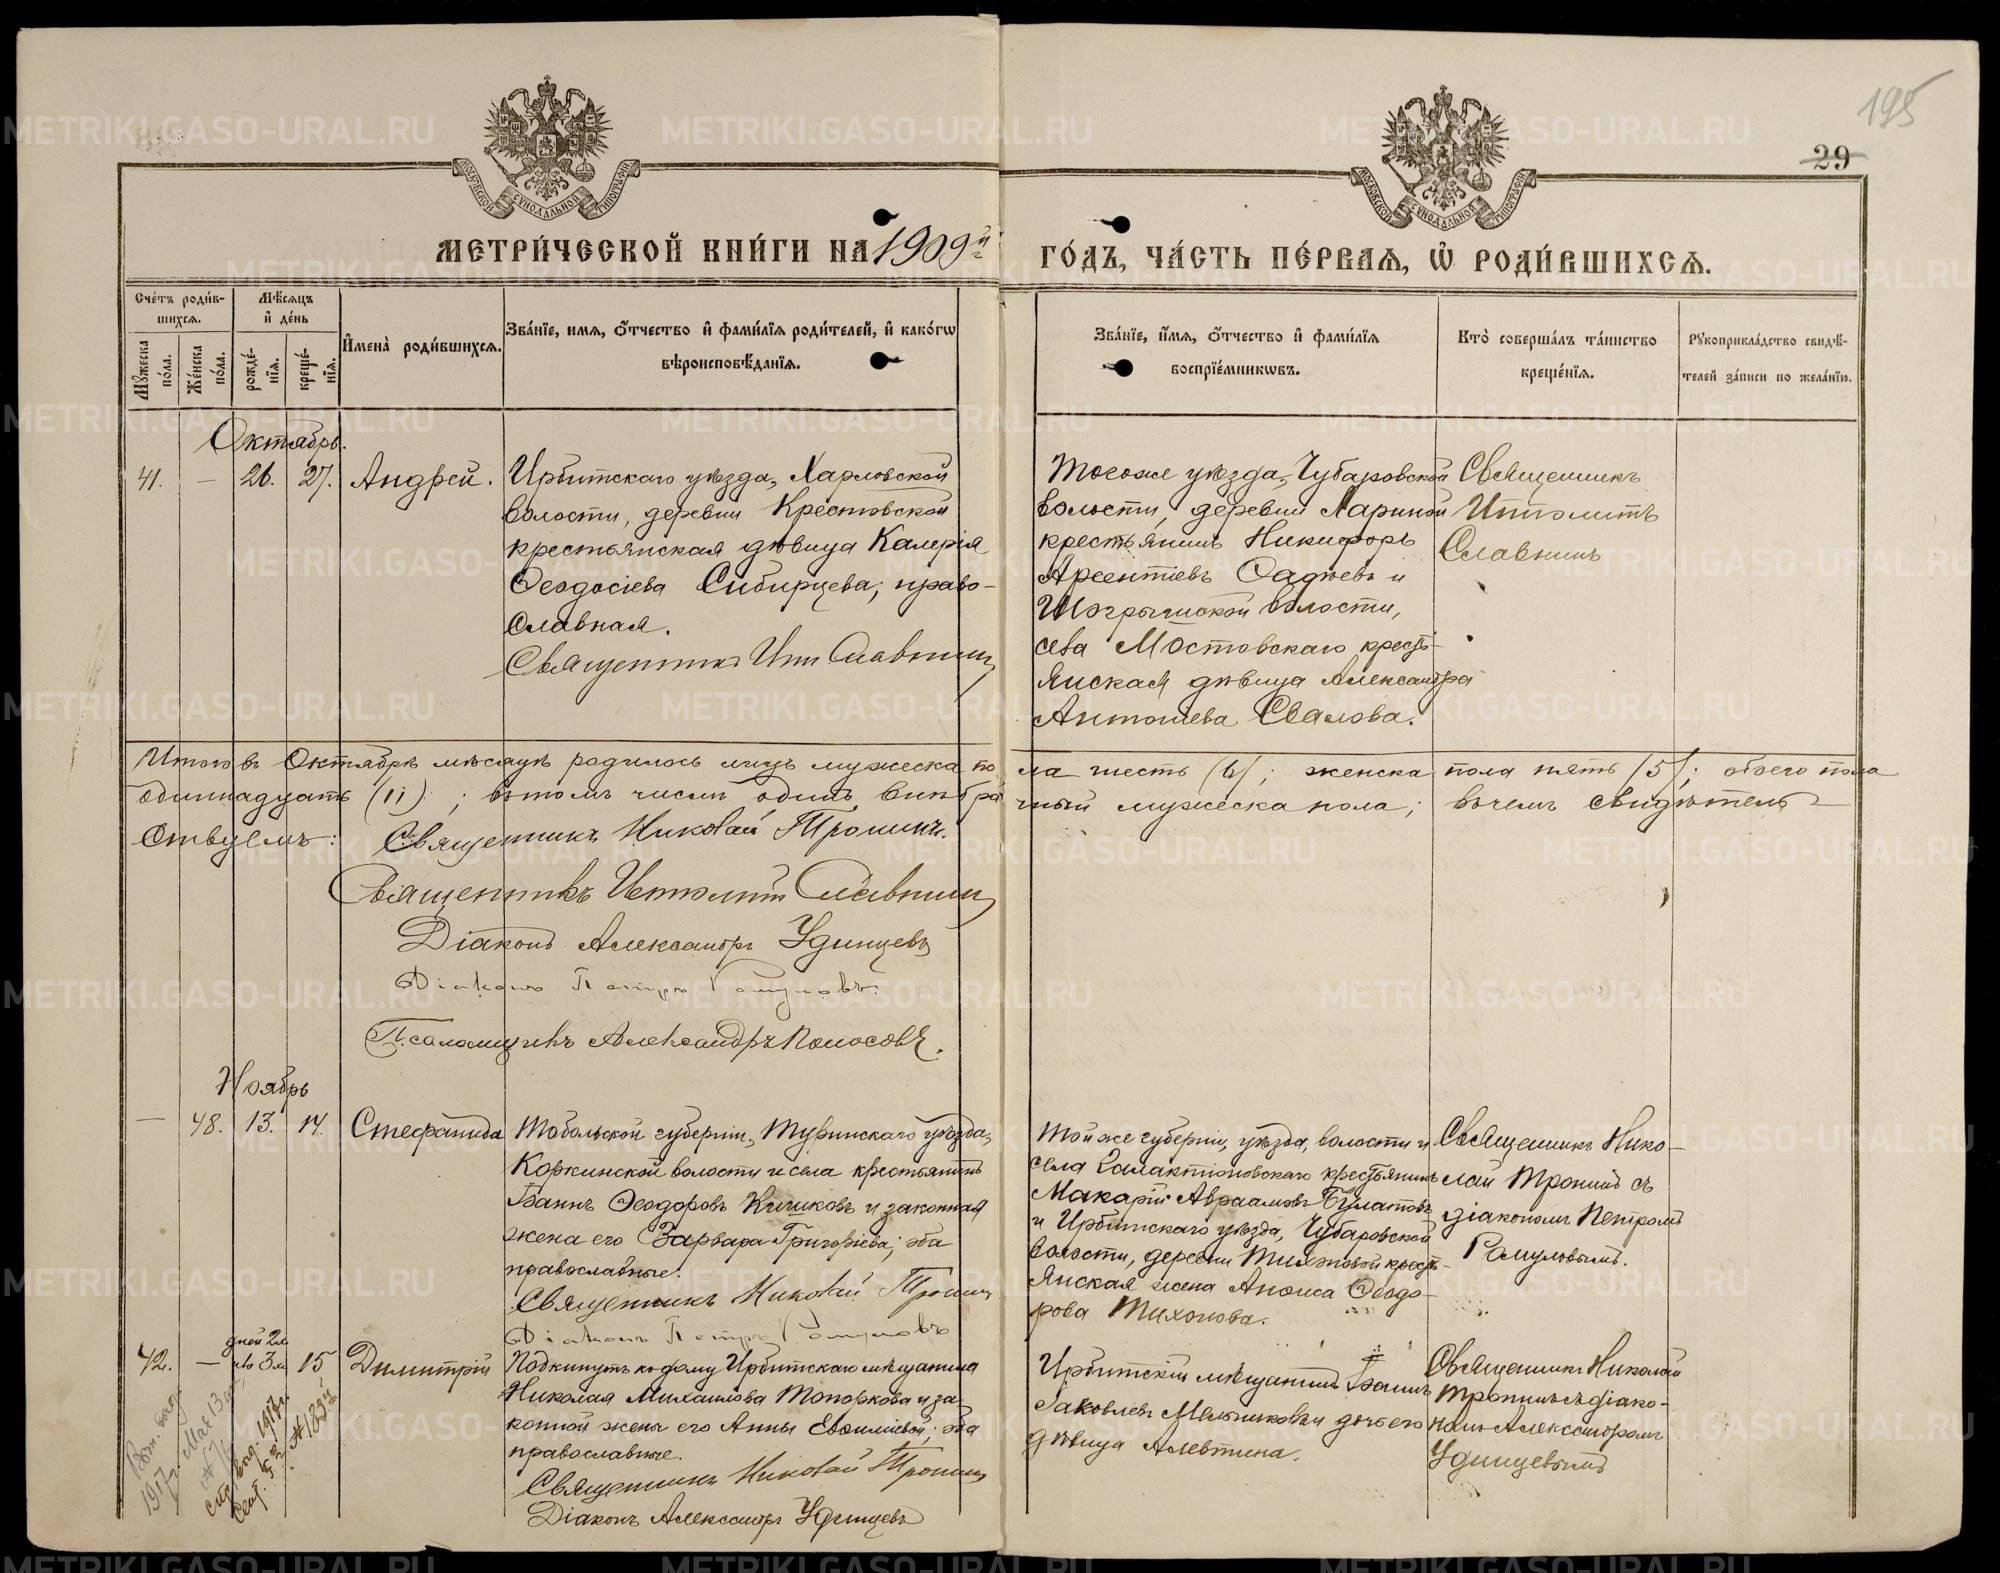 195
29
МОСКОВСКОЙ СѴНОДАЛЬНОЙ ТИПОГРАФІИ
МОСКОВСКОЙ СѴНОДАЛЬНОЙ ТИПОГРАФІИ
МЕТРИ́ЧЕСКОЙ КНИ́ГИ НА 1909й
ГО́ДЪ, ЧА́СТЬ ПЕ́РВАѦ, Ѡ҆ РОДИ́ВШИХСѦ.
Сче́тъ роди́в-
шихсѧ.
Мѣ́сѧцъ
и҆ де́нь
Мꙋ́жеска
по́ла.
Же́нска
по́ла.
рожде́-
нїѧ.
креще́-
нїѧ.
И҆мена̀ роди́вшихсѧ.
Зва́нїе, имѧ, ѻ҆́тчество и҆ фами́лїѧ роди́телей, и҆ како́гѡ
вѣроисповѣ́данїѧ.
Зва́нїе, и҆́мѧ, ѻ҆́тчество и҆ фами́лїѧ
воспрїе́мникѡвъ.
Кто̀ соверша́лъ та́инство
креще́нїѧ.
Рꙋкоприкла́дство свидѣ́-
телей за́писи по жела́нїю.
Октябрь.
41. — 26. 27. Андрей.
Ирбитскаго уѣзда, Харловской
волости, деревни Крестовской
крестьянская дѣвица Калерія
Ѳеодосіева Сибирцева, право-
славная.
Священникъ Ип. Славнин
Тогоже уѣзда, Чубаровской
волости, деревни Лариной
крестьянинъ Никифоръ
Арсентіевъ Садѣевъ и
Шогрышской волости,
села Мостовскаго кресть-
янская дѣвица Александра
Антониева Свалова.
Священникъ
Ипполитъ
Славнинъ
Итого въ Октябрѣ мѣсяцѣ родилось лицъ мужеска по ла шесть (6); женска пола пять (5); обоего пола
одиннадцать (11); въ томъ числѣ одинъ внѣбра чный мужеска пола; въ чемъ свидѣтель-
ствуемъ: Священникъ Николай Тронинъ.
Священникъ Ипполит Славнин
Діаконъ Александръ Удинцевъ
Діаконъ Петръ Рамуловъ.
Псаломщикъ Александръ Колосовъ.
Ноябрь
— 48. 13. 14. Стефанида
Тобольской губерніи, Туринскаго уѣзда,
Коркинской волости и села крестьянинъ
Іоаннъ Ѳеодоровъ Кичиковъ и законная
жена его Варвара Григоріева; оба
православные.
Священникъ Николай Тронин
Діаконъ Петръ Рамуловъ
Той же губерніи, уѣзда, волости и
села Галактіоновскаго крестьянинъ
Макарій Авраамовъ Булатовъ
и Ирбитскаго уѣзда, Чубаровской
волости, деревни Тихоновой кресть-
янская жена Анфиса Ѳеодо-
рова Тихонова.
Священникъ Нико-
лай Тронинъ съ
діакономъ Петромъ
Рамуловымъ.
дней 2м
42. — 3м 15 Димитрій
Подкинутъ къ дому Ирбитскаго мѣщанина
Николая Михаилова Топоркова и за-
конной жены его Анны Евсилиевой, оба
православные.
Священникъ Николай Тронин
Діаконъ Александръ Удинцевъ
Ирбитскій мѣщанинъ Іоаннъ
Іаковлевъ Мельниковъ и дочь его
дѣвица Алевтина.
Священникъ Николай
Тронинъ съ діако-
номъ Александромъ
Удинцевымъ
1917г. Мая 13
№ 133й
METRIKI.GASO-URAL.RU